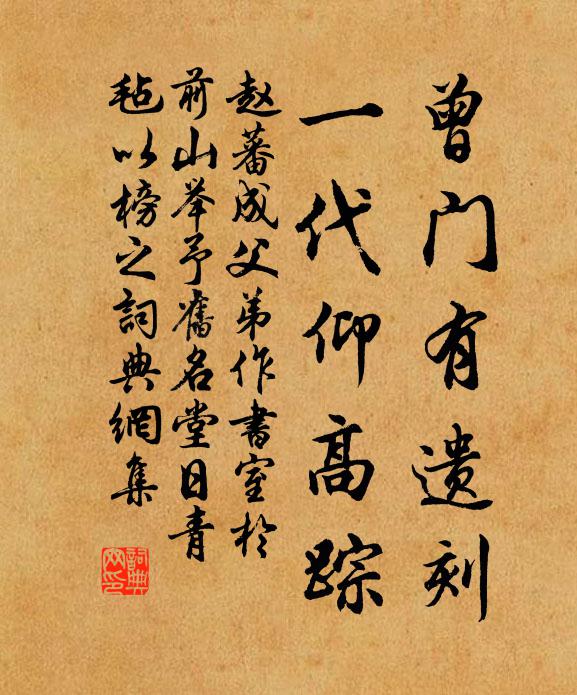 曾门有遗刻
一代仰高踪
赵蕃成父弟作書室於
前山举予舊名堂日青
毡以榜之詞典網集
詞典网印